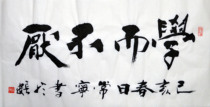 學而不厭
己亥春日常寧書於